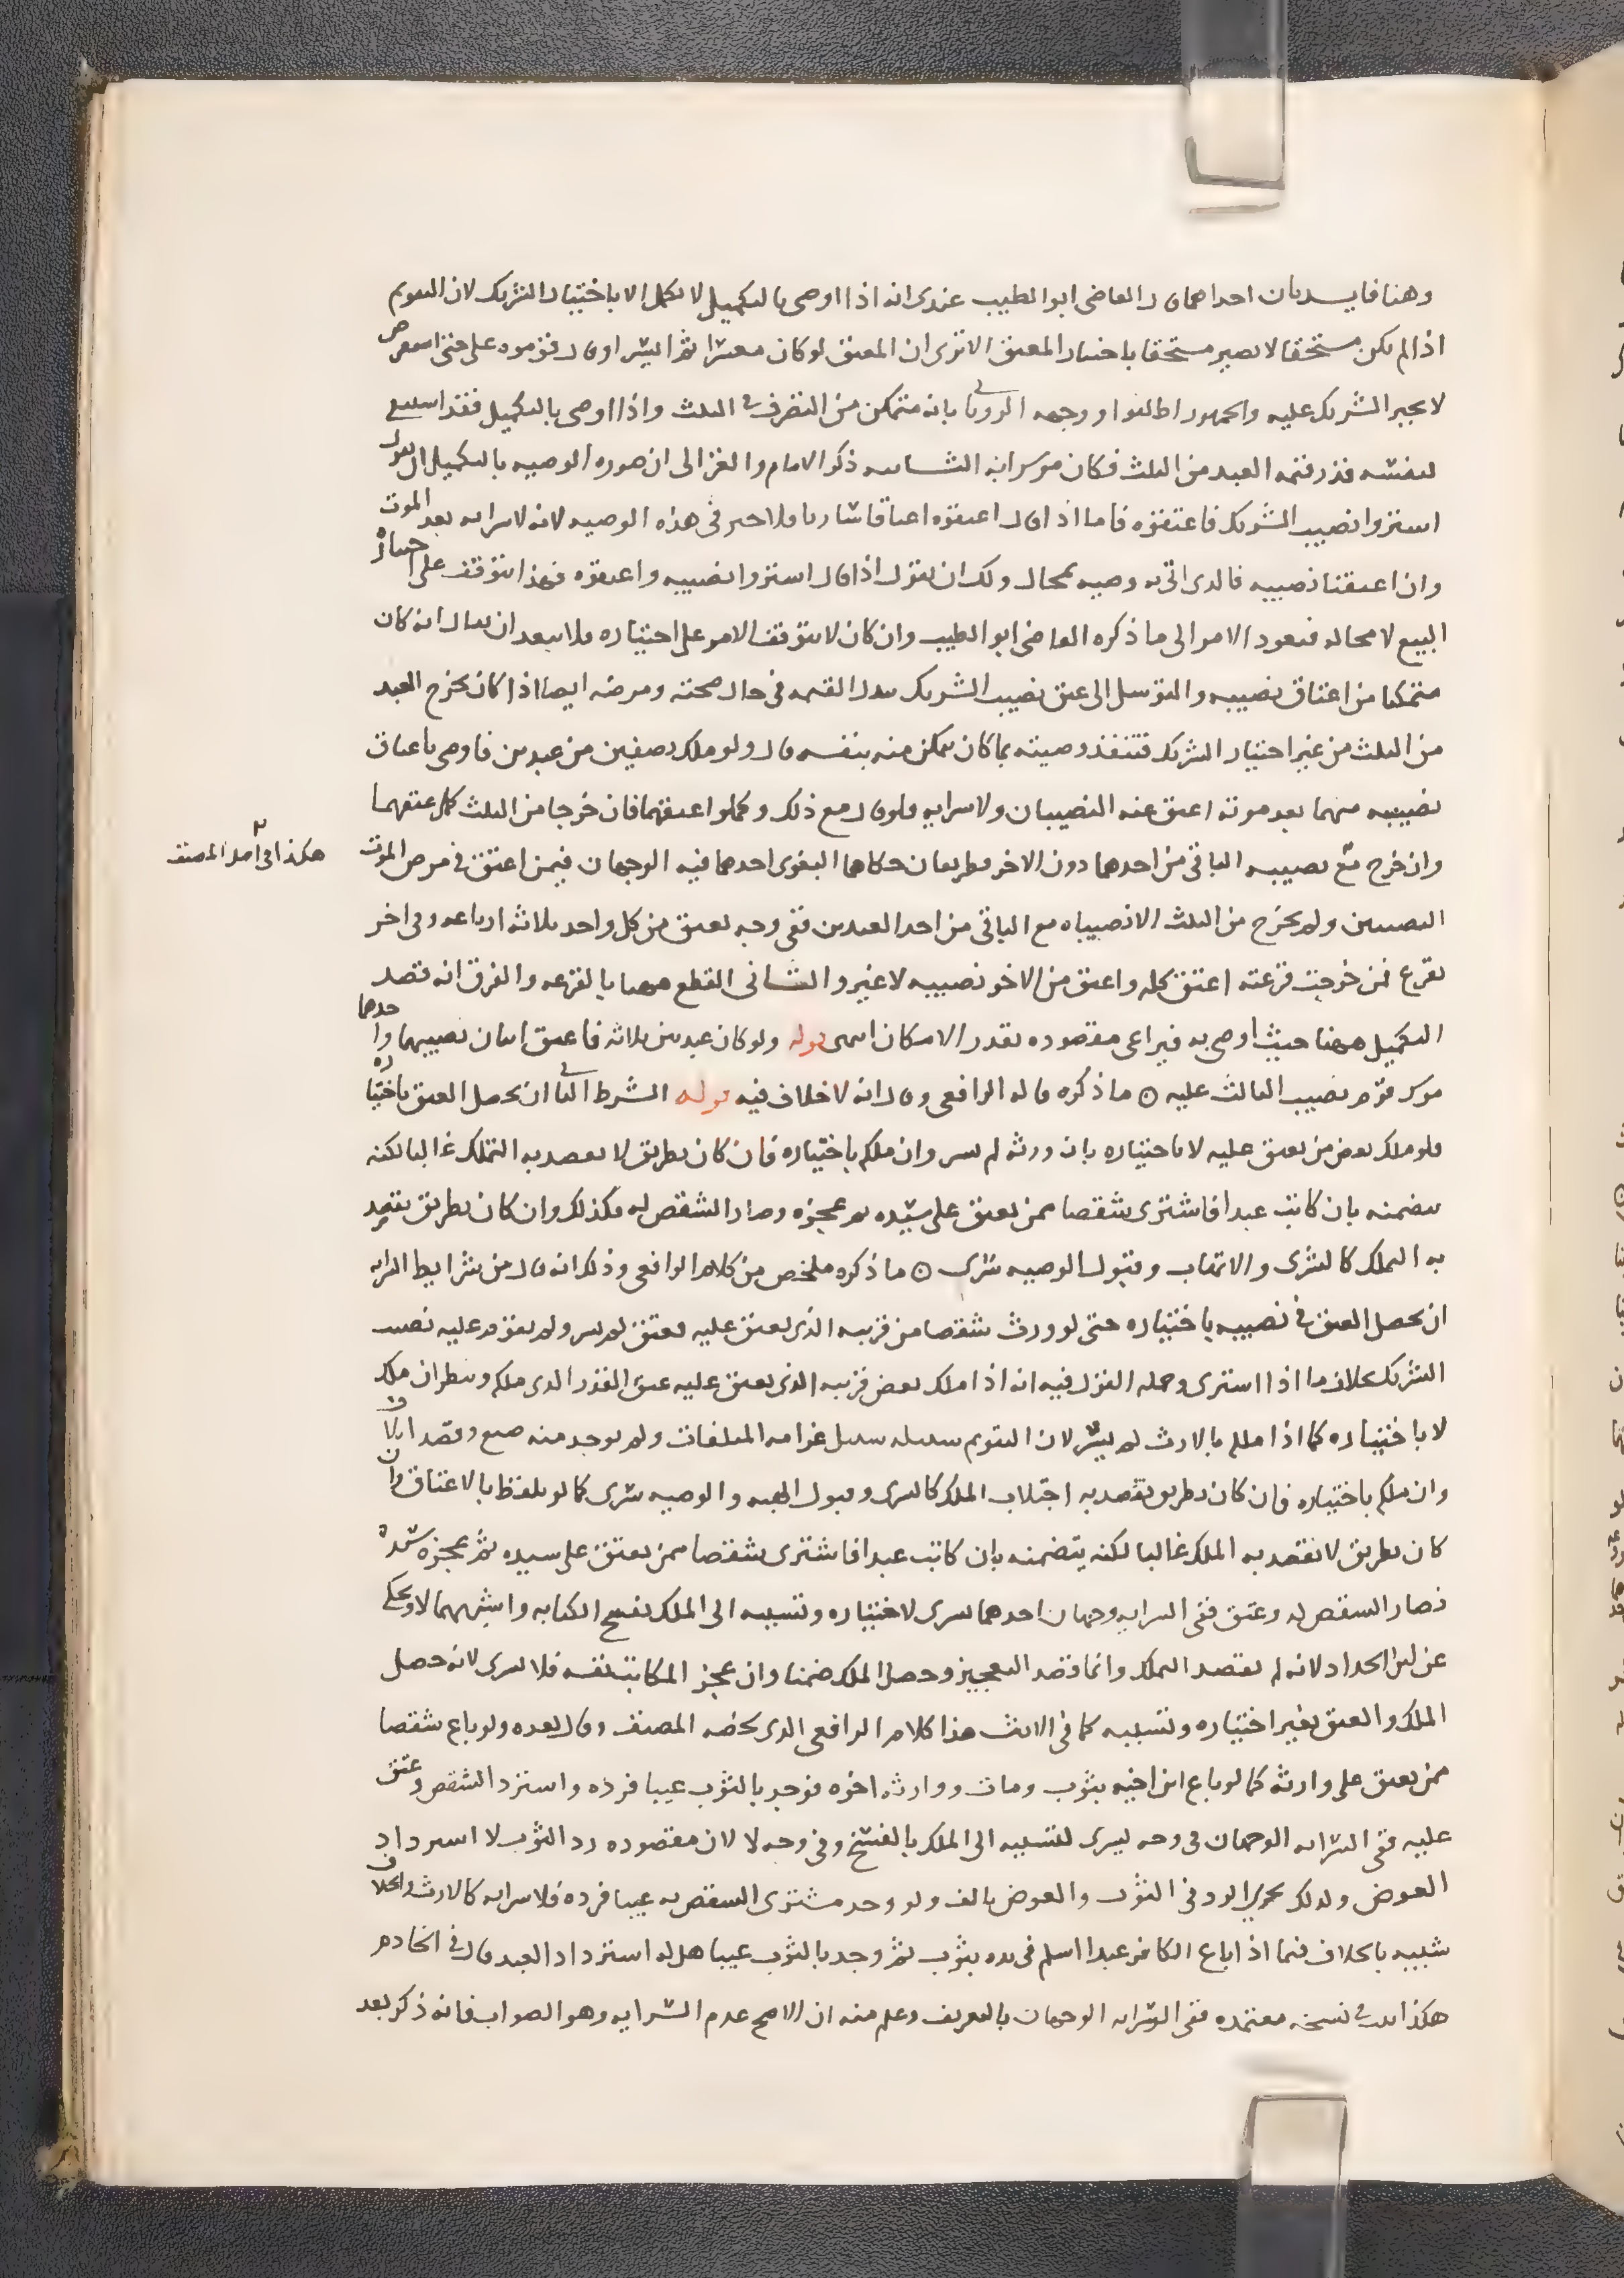 وهنا فايدتان احداهما قال القاضي ابو الطيب عندي انه اذا اوصى بالتكميل لا يكمل الا باختيار الشريك لان التقويم
اذا لم يكن مستحقا لا يصير مستحقا باختيار المعتق الا ترى ان المعتق لو كان معسرا ثم ايسر او قال قوموه علي حتى استقرض
لا يجبر الشريك عليه والجمهور اطلقوا ووجهه الروياني بانه متمكن من التصرف في الثلث واذا اوصى بالتكميل فقد استبقى
لنفسه قدر قيمة العبد من الثلث فكان موسرا به الثانيه ذكر الامام والغزالي ان صورة الوصيه بالتكميل ان يقول
اشتروا نصيب الشريك فاعتقوه فاما اذا قال اعتقوه اعتاقا ساريا فلا خير في هذه الوصيه لانه لا سرايه بعد الموت
وان اعتقنا نصيبه فالذي اتى به وصيه بمحال ولك ان تقول اذا قال اشتروا نصيبه واعتقوه فهذا يتوقف على اختيار
البيع لا محاله فيعود الامر الى ما ذكره القاضي ابو الطيب وان كان لا يتوقف الامر على اختياره فلا يبعد ان يقال انه كان
متمكنا من اعتاق نصيبه والتوسل الى عتق نصيب الشريك ببذل القيمه في حال صحته ومرضه ايضا اذا كان يخرج العبد
من الثلث من غير اختيار الشريك فتنفذ وصيته بما كان يمكن منه بنفسه قال ولو ملك نصفين من عبدين فاوصى باعتاق
نصيبيه منهما بعد موته اعتق عنه النصيبان ولا سرايه فلو قال مع ذلك وكملوا عتقهما فان خرجا من الثلث كمل عتقهما
وان خرج مع نصيبيه الباقي من احدهما دون الاخر فطريقان حكاهما البغوي احدهما فيه الوجهان فيمن اعتق في مرض الموت
النصيبين ولم يخرج من الثلث الا نصيباه مع الباقي من احد العبدين ففي وجه يعتق من كل واحد ثلاثه ارباعه وفي اخر
يقرع فمن خرجت قرعته اعتق كله واعتق من الاخر نصيبه لا غير والثاني القطع ههنا بالقرعه والفرق انه قصد
التكميل ههنا حيث اوصى به فيراعى مقصوده بقدر الامكان انتهى قوله ولو كان عبد بين ثلاثه فاعتق اثنان نصيبهما واحدهما
موسر قوم نصيب الثالث عليه ۞ ما ذكره قاله الرافعي وقال انه لا خلاف فيه قوله الشرط الثاني ان يحصل العتق باختياره
فلو ملك بعض من يعتق عليه لا باختياره بان ورثه لم يسر وان ملكه باختياره فان كان بطريق لا يقصد به التملك غالبا لكنه
يتضمنه بان كاتب عبدا فاشترى شقصا ممن يعتق على سيده ثم عجزه وصار الشقص له فكذلك وان كان بطريق يقصد
به التملك كالشرى والاتهاب وقبول الوصيه سرى ۞ ما ذكره ملخص من كلام الرافعي وذلك انه قال من شرايط السرايه
ان يحصل العتق في نصيبه باختياره حتى لو ورث شقصا من قريبه الذي يعتق عليه فعتق لم يسر ولم يقوم عليه نصيب
الشريك بخلاف ما اذا اشترى وجملة القول فيه انه اذا ملك بعض قريبه الذي يعتق عليه عتق القدر الذي ملكه وينظر ان ملك
لا باختياره كما اذا ملكه بالارث لم يسر لان التقويم سبيله سبيل غرامة المتلفات ولم يوجد منه صنع وقصد اتلاف
وان ملكه باختياره فان كان بطريق يقصد به اجتلاب الملك كالشرى وقبول الهبه والوصيه سرى كما لو تلفظ بالاعتاق وان
كان بطريق لا يقصد به الملك غالبا لكنه يتضمنه بان كاتب عبدا فاشترى شقصا ممن يعتق على سيده ثم عجزه سيده
فصار الشقص له وعتق ففي السرايه وجهان احدهما يسري لاختياره وتسببه الى الملك بفسخ الكتابه واشبههما لا ويحكى
عن ابن الحداد لانه لم يقصد التملك وانما قصد التعجيز وحصل الملك ضمنا وان عجز المكاتب نفسه فلا يسري لانه حصل
الملك والعتق بغير اختياره وتسببه كما في الارث هذا كلام الرافعي الذي لخصه المصنف وقال بعده ولو باع شقصا
ممن يعتق على وارثه كما لو باع ابن اخيه بثوب ومات ووارثه اخوه فوجد بالثوب عيبا فرده واسترد الشقص وعتق
عليه ففي السرايه الوجهان في وجه يسري لتسببه الى الملك بالفسخ وفي وجه لا لان مقصوده رد الثوب لا استرداد
العوض ولذلك يجوز الرد في الثوب والعوض تالف ولو وجد مشتري الشقص به عيبا فرده فلا سرايه كالارث والخلاف
شبيه بالخلاف فيما اذا باع الكافر عبدا اسلم في يده بثوب ثم وجد بالثوب عيبا هل له استرداد العبد قال في الخادم
هكذا في نسخه معتمده ففي السرايه الوجهان بالتعريف وعلم منه ان الاصح عدم السرايه وهو الصواب فانه ذكر بعد
هكذا في اصل المصنف